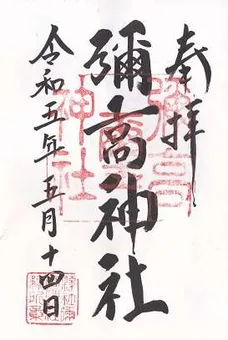 奉拝
彌高神社
令和五年五月十四日
彌高
神社